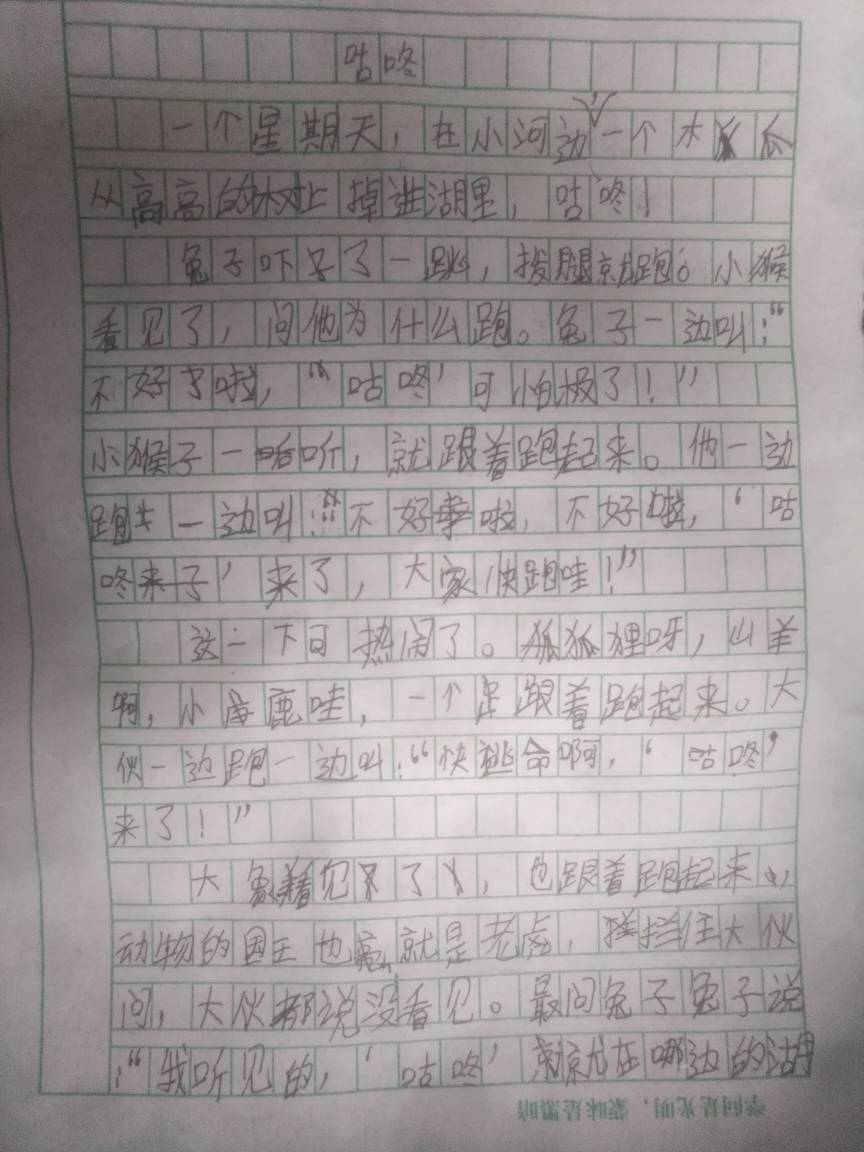 咕咚
一个星期天，在小河边，一个木瓜
从高高的树上掉进湖里，咕咚！
兔子吓了一跳，拔腿就跑。小猴
看见了，问他为什么跑。兔子一边叫：“
不好了啦，“咕咚’可怕极了！”
小猴子一听，就跟着跑起来。他一边
跑一边叫：“不好啦，不好啦，‘咕
咚’来了，大家快跑哇！”
这一下可热闹了。狐狸呀，山羊
啊，小鹿哇，一个跟着跑起来。大
伙一边跑一边叫：“快逃命啊，‘咕咚’
来了！”
大象看见了，也跟着跑起来，
动物的国王也就是老虎，拦住大伙
问，大伙都说没看见。最问兔子兔子说
：“我听见的，‘咕咚’就在哪边的湖
学问是光明，蒙昧是黑暗